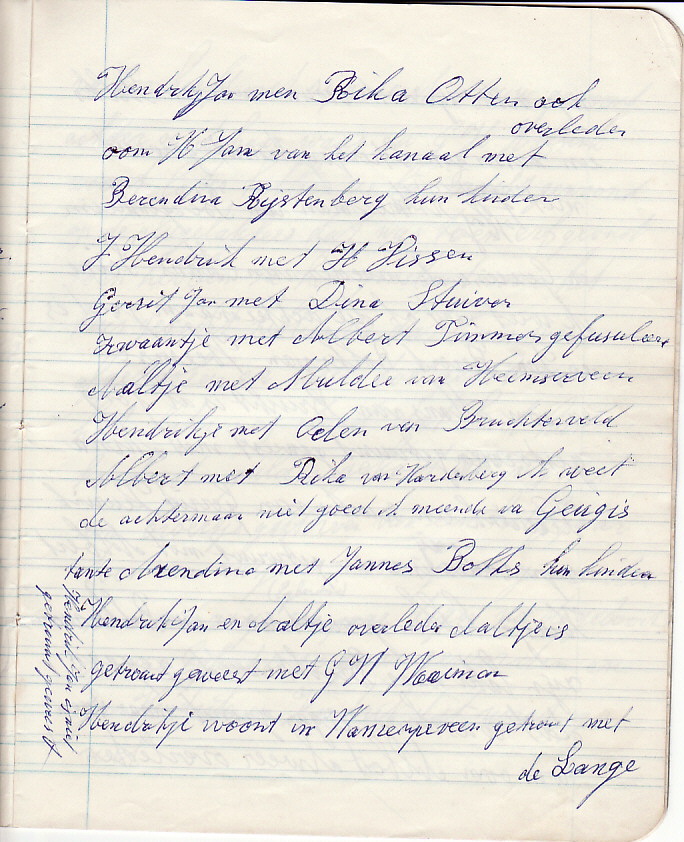 Hendrik Jan men Rika Otten ook
overleden
oom H Jan van het kanaal met
Berendina Rijstenberg hun kinder
J Hendrik met H Pissen
Gerrit Jan met Dina Stuiver
zwaantje met Albert Timmer gefusuleer
Aaltje met Mulder van Heemserveen
Hendrikje met Oelen van Bruchterveld
Albert met Rika van Hardenberg k weet
de achternaam niet goed k meende va Geugis
tante Arendina met Jannes Bolks hun kinder
Hendrik Jan en Aaltje overleden Aaltje is
getrout geweest met G W
Hendrikje woont in getrout met
de Lange
Hendrik Jan is niet
getrouwt geweest